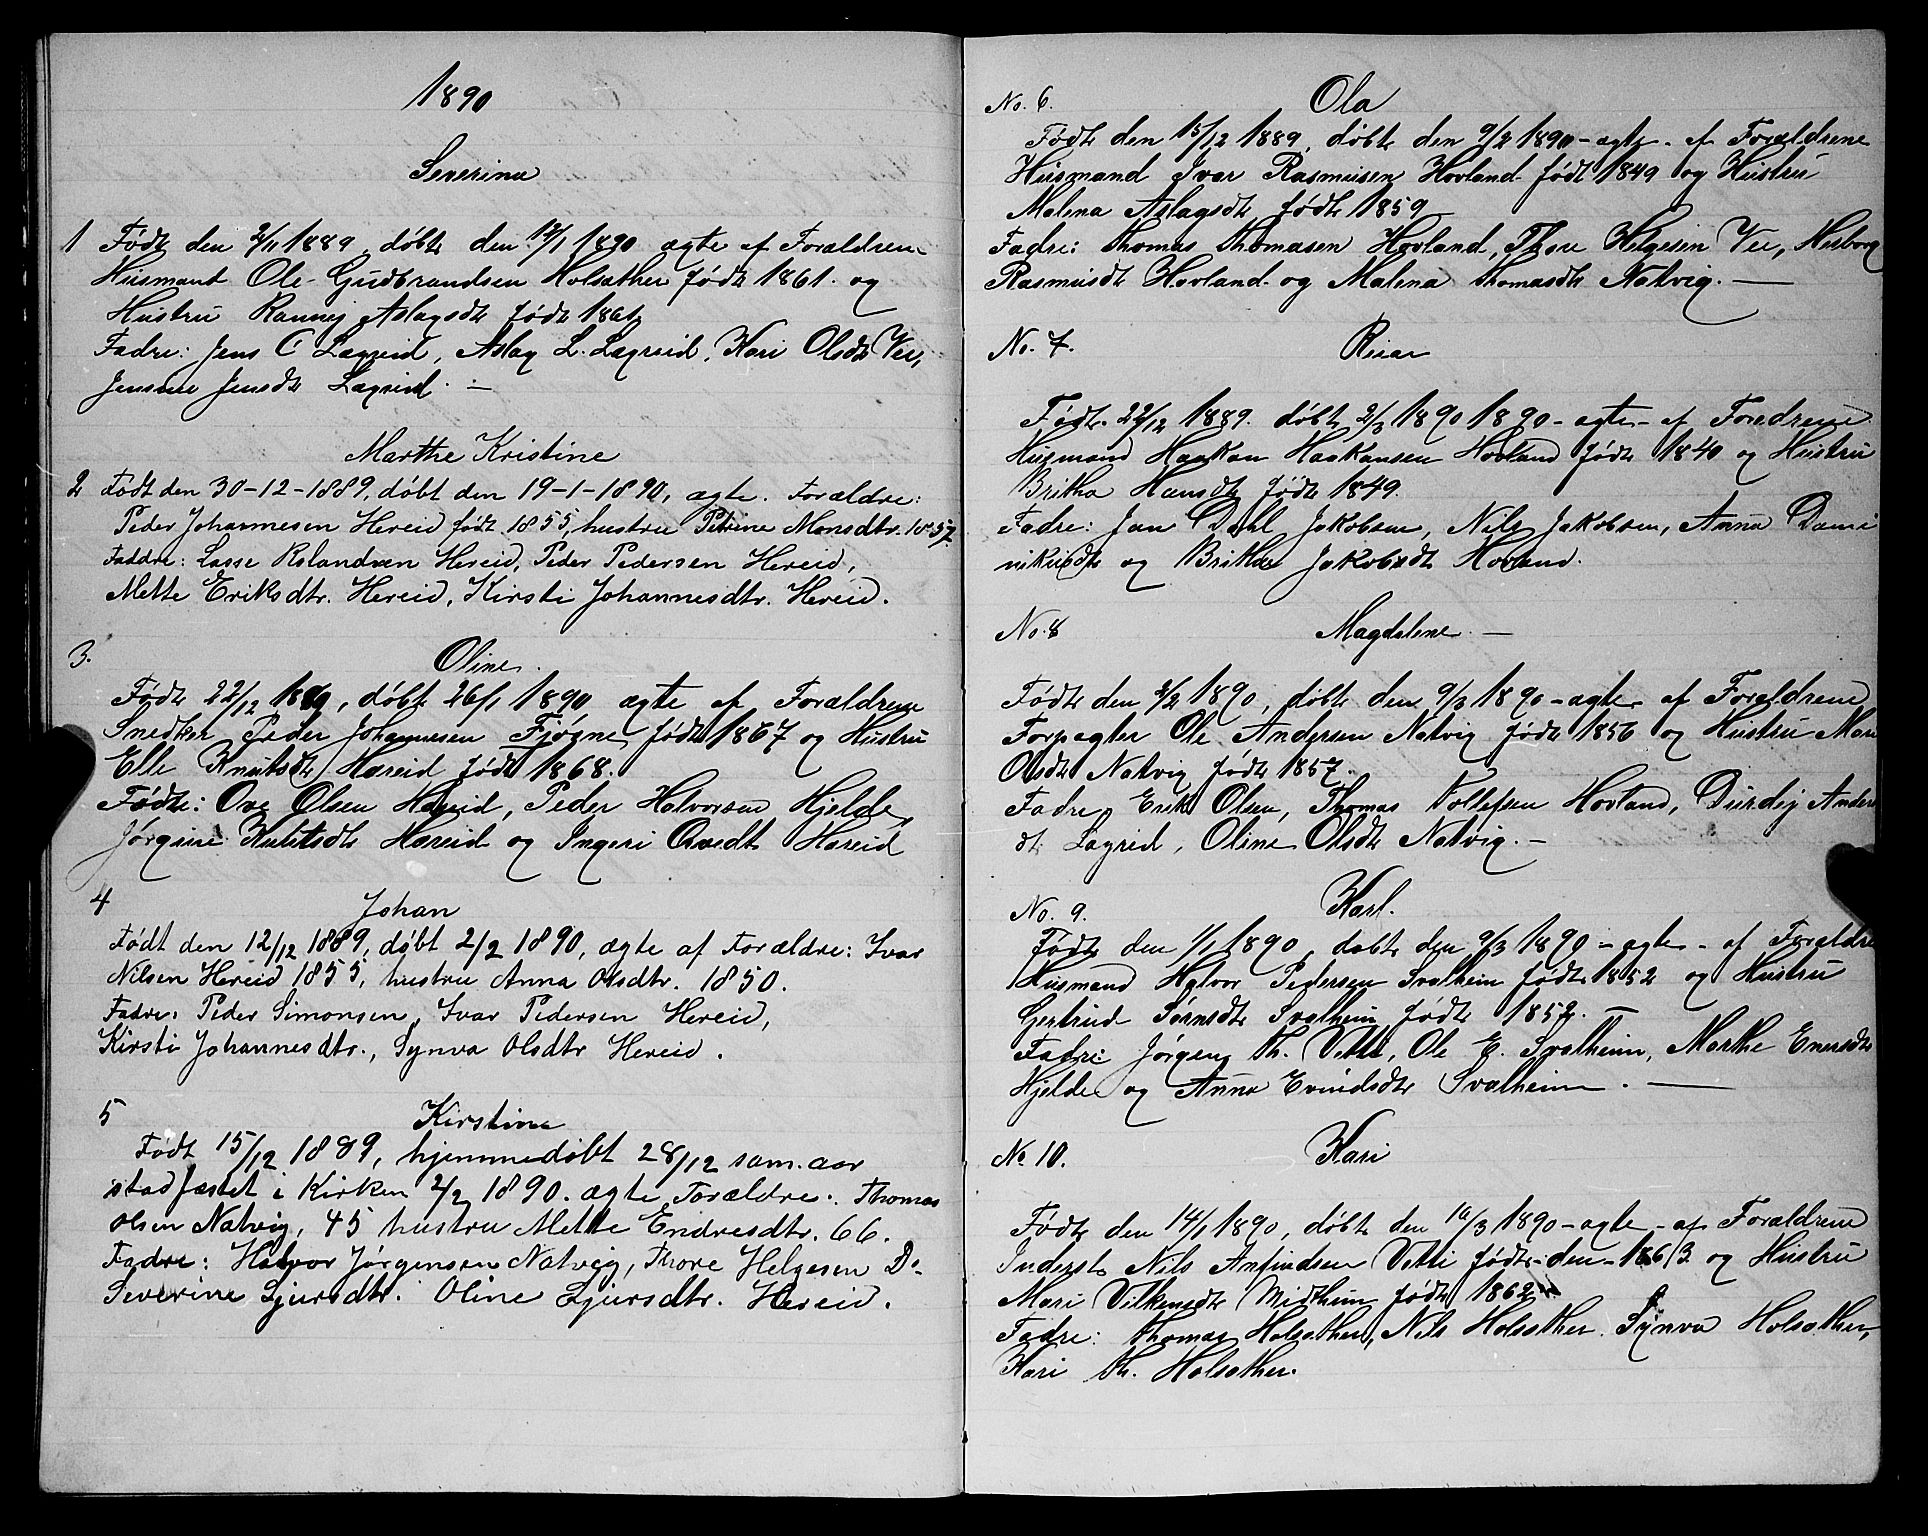 1890
Severina
1 Født den 2/11 1889, døbt den 12/1 1890 ægte af Forældrene
Husmand Ole Gudbrandsen Holsæther født 1861. og
Hustru Rannej Aslagsdt født 1861
Fadre: Jens C Lægreid, Aslag L. Lægreid, Kari Olsdt Vee,
Jensine Jensdt Lægreid. —
Marthe Kristine
2 Født den 30-12-1889, døbt den 19-1-1890, ægte. Forældre:
Peder Johannesen Hereid født 1855, hustru Petrine Monsdtr. 1857.
Faddre: Lasse Rolandsen Hereid, Peder Pedersen Hereid,
Mette Eriksdtr. Hereid, Kirsti Johannesdtr. Hereid.
3. Oline.
Født 22/12 1889, døbt 26/1 1890 ægte af Forældrene
Snedker Peder Johannesen Fjøgne født 1867 og Hustru
Elle Knutsdt Hæreid født 1868.
Fødte: Ove Olsen Hæreid, Peder Halvorsen Hjelde,
Jørgine Knutsdt Hæreid og Ingeri Ovedt Hæreid
4 Johan
Født den 12/12 1889, døbt 2/2 1890, ægte af Forældre: Ivar
Nilsen Hereid 1855, hustru Anna Olsdtr. 1850.
Fadre: Peder Simonsen, Ivar Pedersen Hereid,
Kirsti Johannesdtr., Synva Olsdtr Hereid.
5 Kirstine
Født 15/12 1889, hjemmedøbt 28/12 sam. aar
stadfæstet i Kirken 2/2 1890. ægte, Forældre: Thomas
Olsen Natvig, 45 hustru Mette Endresdtr. 66.
Fadre: Halvor Jørgensen Natvig, Thore Helgesen Do.
Severine Sjursdtr. Oline Sjursdtr. Hereid.
No. 6. Ola
Født den 15/12 1889, døbt den 9/2 1890 - ægte - af Forældrene
Husmand Ivar Rasmusen Hovland født 1849 og Hustru
Malena Aslagsdt født 1859
Fadre: Thomas Thomasen Hovland, Thore Helgesen Vee, Herborg
Rasmusdt Hovland og Malena Thomasdt Natvig. —
No. 7. Reiar
Født 22/12 1889. døbt 2/3 1890 1890 - ægte - af Foredrene
Husmand Haakon Haakonsen Hovland født 1840 og Hustru
Britha Hansdt født 1849.
Fadre: Jan Dahl Jakobsen, Nils Jakobsen, Anna Domi
nikusdt og Britha Jakobsdt Hovland.
No. 8 Magdalene. —
Født den 2/2 1890, døbt den 9/3 1890 - ægte - af Forældrene
Forpagter Ole Andersen Natvig født 1856 og Hustru Mari
Olsdt Natvig født 1857.
Fadre, Erik Olsen, Thomas Tollefsen Hovland, Durdej Anders
dt Lægreid, Oline Olsdt Natvig. —
No. 9. Karl.
Født den 1/1 1890, døbt den 9/3 1890 - ægte - af Forældre
Husmand Halvor Pedersen Svalheim født 1852 og Hustru
Gertrud Sørnsdt Svalheim født 1852. —
Fadre: Jørgen Th. Vetti, Ole E. Svalheim, Marthe Enersdt
Hjelde og Anna Evindsdt Svalheim. —
No 10. Kari
Født den 14/1 1890, døbt den 16/3 1890 - ægte - af Forældrene
Inderst Nils Anfindsen Vetti født - den - 1863 og Hustru
Mari Vilkensdt Midthun født 1862.
Fadre: Thomas Holsæther, Nils Holsæther. Synva Holsæther,
Kari Th. Holsæther.